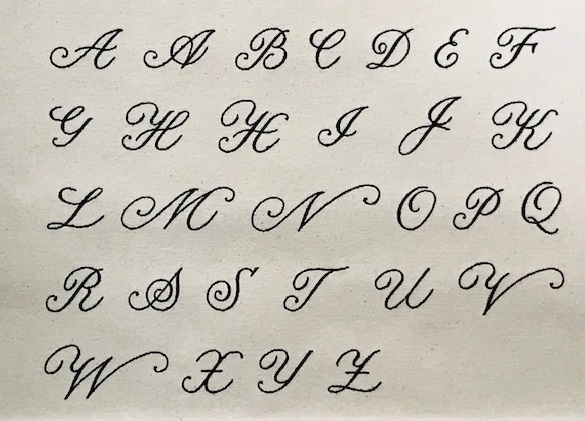 A A B C D E F
G H H I J K
L M N O P Q
R S S T U V
W X Y Z